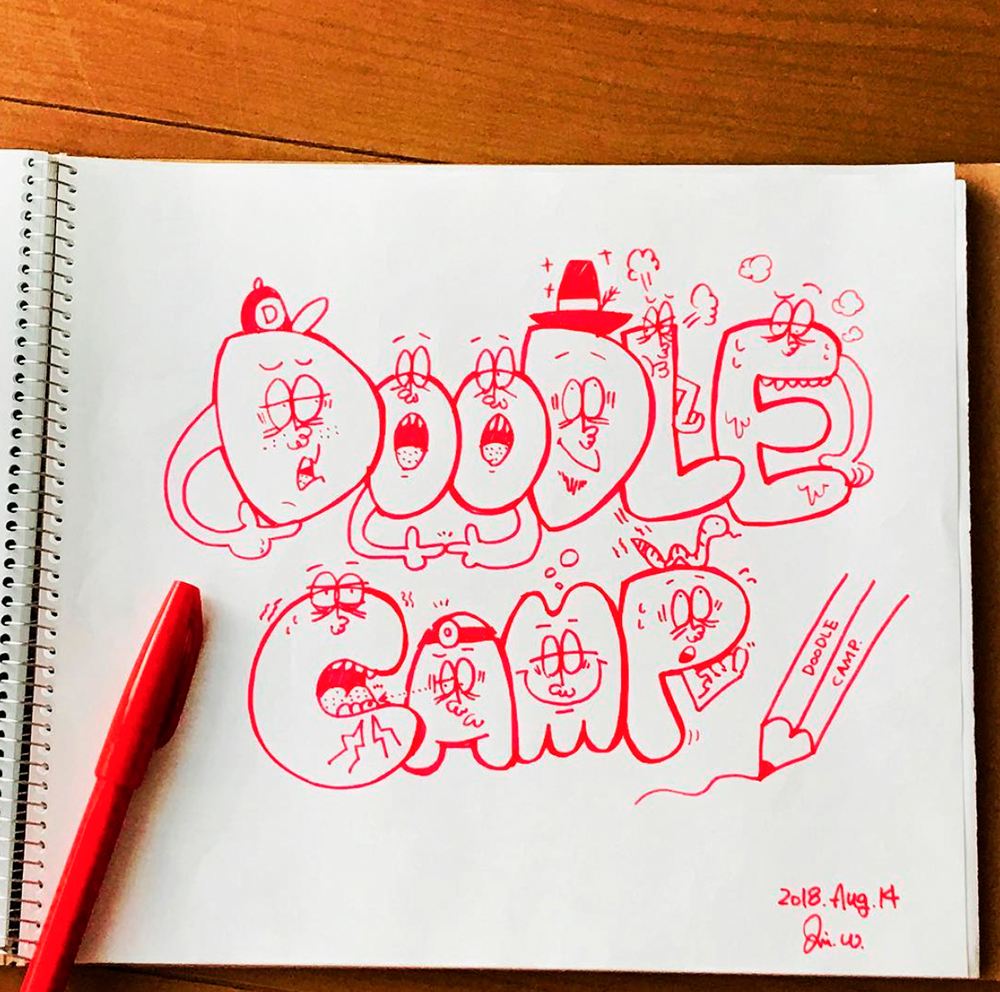 D
DOODLE
CAMP
DOODLE
CAMP.
2018.Aug.14